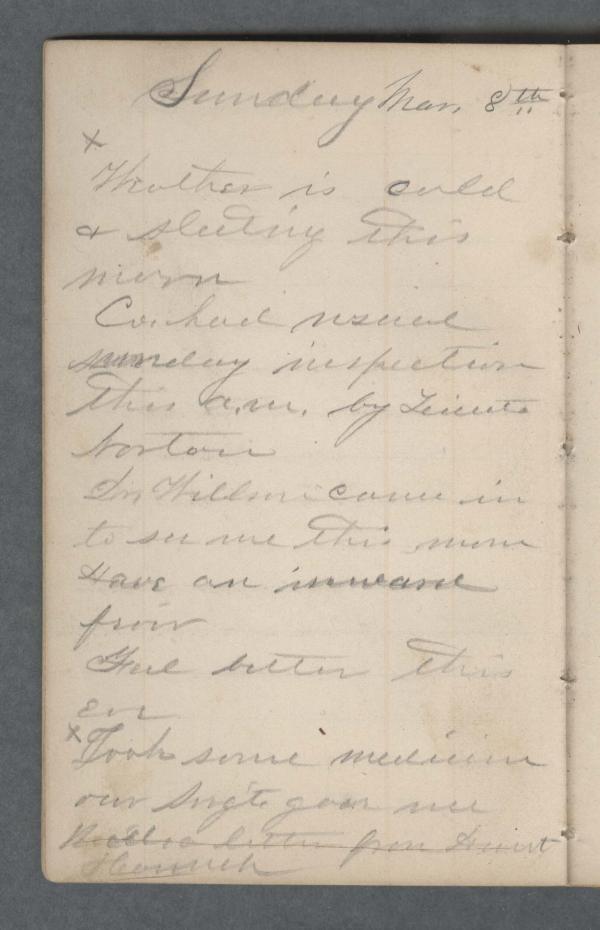 Sunday Mar. 8th
x
Weather is cold
& sleeting this
morn
Co. had usual
sunday inspection
this a.m. by Lieut
Norton
Dr. Willson came in
to see me this morn
Have an inward
feivr
Feel better this
eve
x Took some medicine
our Srg't gave me
letter from Aunt
Hannah